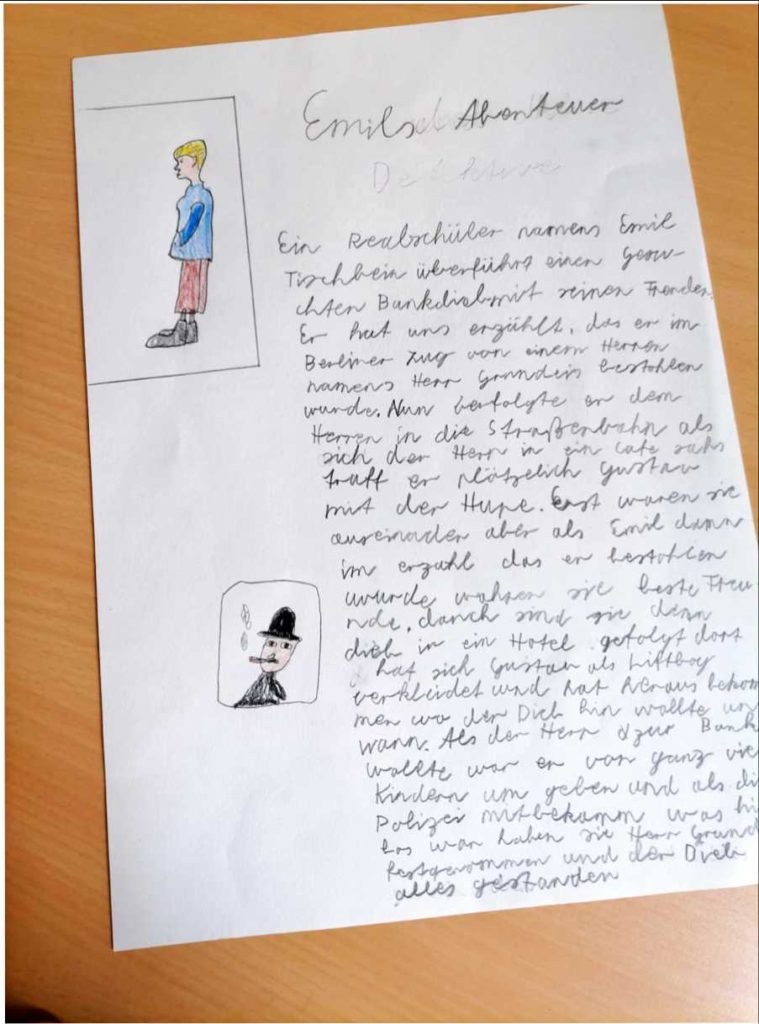 Emils Abenteuer
Ein Realschüler namens Emil
Tischbein überführt einen gesu-
chten Bankdieb mit seinen Freunden.
Er hat uns erzählt, das er im
Berliner Zug von einem Herren
namens Herr Grundeis bestohlen
wurde. Nun verfolgte er dem
Herren in die Straßenbahn als
sich der Herr in ein Cafe
traff er plötzelich Gustav
mit der Hupe. Erst waren sie
auseinader aber als Emil dann
im erzahl das er bestohlen
wurde wahren sie beste Freu-
nde, danch sind sie dann
dieb in ein Hotel gefolgt dort
hat sich Gustav als Liftboy
verkleidet und hat heraus bekom
men wo der Dieb hin wollte un
wann. Als der Herr zur Bank
wollte war er von ganz vie
Kindern um geben und als di
Polizei mitbekamm was hi
los war haben sie Herr Grund
festgenommen und der Dieb
alles gestanden